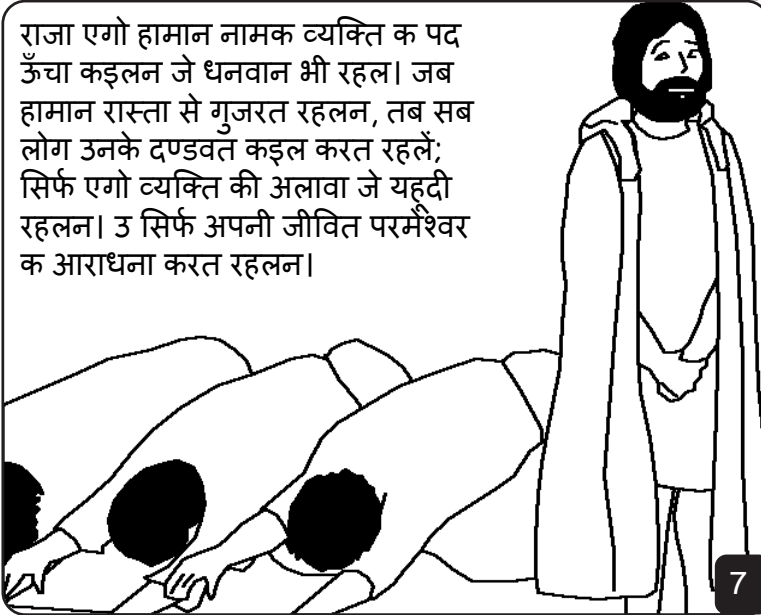 राजा एगो हामान नामक व्यक्ति क पद
ऊँचा कइलन जे धनवान भी रहल। जब
हामान रास्ता से गुजरत रहलन, तब सब
लोग उनके दण्डवत कइल करत रहलें;
सिर्फ एगो व्यक्ति की अलावा जे यहूदी
रहलन। उ सिर्फ अपनी जीवित परमेंश्वर
क आराधना करत रहलन।
7